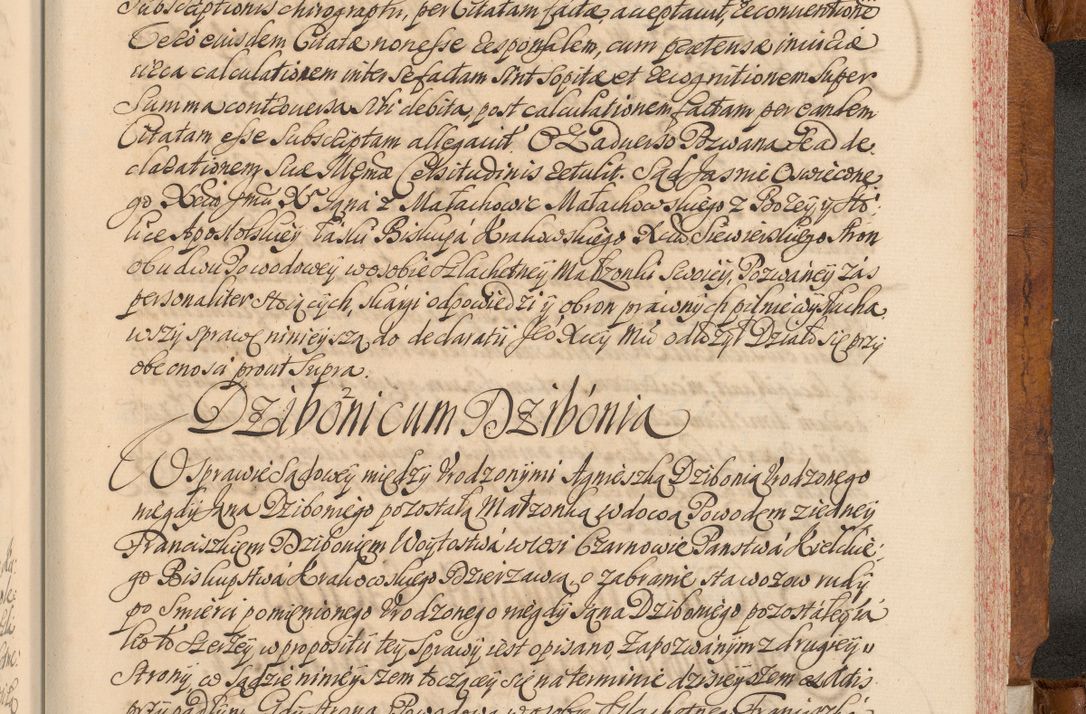 Subscriptionis chirographi, per Citatam factæ acceptavit, Reconventione
Reo eiusdem Citatæ non esse responsalem, cum prætensæ iniuriæ
circa calculationem inter se factam sint sopitæ et recognitionem super
summa controversa sibi debita, post calculationem factam, per eandem
Citatam esse subscriptam allegavit. Ex adverso Pozwana se ad de
clarationem Suæ Illgmæ Celsitudinis retulit. Sąd Jasnie Oswiecone
go Xcia Jmći X. Jana z Małachowic Małachowskiego z Bożey y Sto
lice Apostolskiey łaski Biskupa Krakowskiego Xcia Siewierskiego stron
obudwu Powodowey w osobie Szlachetney Małzonki swoiey, Pozwaney zas
personaliter stoiących, skargi odpowiedzi y obron prawnych pilnie wysłucha
wszy sprawę ninieyszą do declaratii Jeo Xcey Mći odłozył Działo się przy
obecnosci prout supra.
Dziboni cum Dzibonia
W sprawie sądowey między Urodzonymi Agnieszką Dzibonią Urodzonego
niegdy Jana Dziboniego pozostałą Małzonką wdową Powodem z iedney
Franciszkiem Dzibonim Woytostwa w wsi Czarnowie Panstwa Kielckie
go Biskupstwa Krakowskiego Dzierzawcą, o zabranie sta wozow rudy
po smierci pomienionego Urodzonego niegdy Jana Dziboniego pozostałey ia
ko to szerzey w propositii tey sprawy iest opisano, Zapozwanym z drugiey
strony, w sądzie ninieyszem toczącey się na terminie dzisieyszem ex
przypadłym Gdy strona Powodowa w osobie Szlachetnego Franciszka